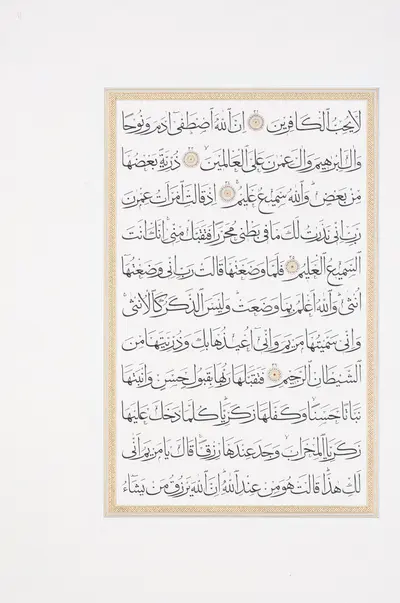 لا يحب الكافرين ان الله اصطفى ادم ونوحا
وال ابرهيم وال عمرن على العالمين ذرية بعضها
من بعض والله سميع عليم اذ قالت امرات عمرن
رب اني نذرت لك ما في بطني محررا فتقبل مني انك انت
السميع العليم فلما وضعتها قالت رب اني وضعتها
انثى والله اعلم بما وضعت وليس الذكر كالانثى
واني سميتها مريم واني اعيذها بك وذريتها من
الشيطان الرجيم فتقبلها ربها بقبول حسن وانبتها
نباتا حسنا وكفلها زكريا كلما دخل عليها
زكريا المحراب وجد عندها رزقا قال يا مريم انى
لك هذا قالت هو من عند الله ان الله يرزق من يشاء